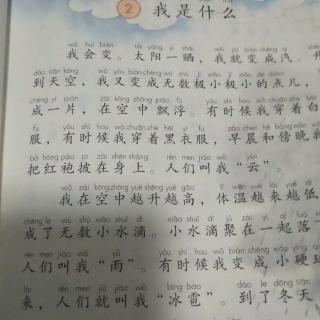 2 我是什么
wǒ huì biàn tài yáng yì shài wǒ jiù biàn chéng qì
我会变。太阳一晒，我就变成汽。升
dào tiān kōng wǒ yòu biàn chéng wú shù jí xiǎo jí xiǎo de diǎnr
到天空，我又变成无数极小极小的点儿，
chéng yí piàn zài kōng zhōng piāo fú yǒu shí hou wǒ chuān zhe bái
成一片，在空中飘浮。有时候我穿着白
fú yǒu shí hou wǒ chuān zhe hēi yī fu zǎo chen hé bàng wǎn wǒ
服，有时候我穿着黑衣服，早晨和傍晚我
bǎ hóng páo pī zài shēn shang rén men jiào wǒ yún
把红袍披在身上。人们叫我“云”。
wǒ zài kōng zhōng yuè shēng yuè gāo tǐ wēn yuè lái yuè dī
我在空中越升越高，体温越来越低
chéng le wú shù xiǎo shuǐ dī xiǎo shuǐ dī jù zài yì qǐ luò
成了无数小水滴。小水滴聚在一起落
rén men jiào wǒ yǔ yǒu shí hou wǒ biàn chéng xiǎo yìng
人们叫我“雨”。有时候我变成小硬球
lái rén men jiù jiào wǒ bīng báo dào le dōng tiān
来，人们就叫我“冰雹”。到了冬天